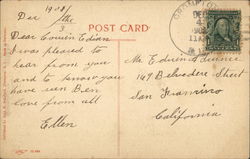 Dec 19.08/
the
3
POST CARD
Dear Cousin
I was pleased to
hear from you
and to know you
have seen Ben
love from all
Ellen
Mr. Edwin
169 Belvedere Street
San Francisco
California